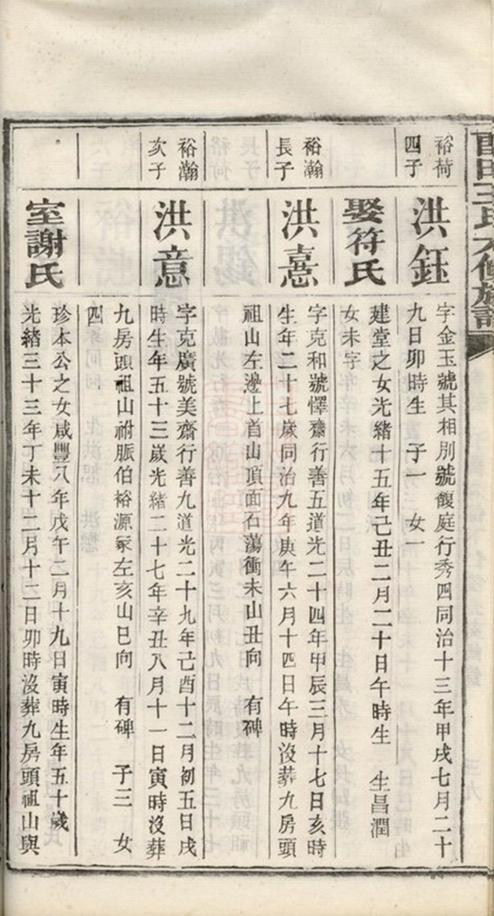 酉田三氏六修族譜
裕荷
四子
洪鈺
字金玉號其相別號馥庭行秀四同治十三年甲戌七月二十
九日卯時生 子一 女一
娶符氏
建堂之女光緒十五年己丑二月二十日午時生 生昌潤
女未字
裕瀚
長子
洪憙
字克和號懌齋行善五道光二十四年甲辰三月十七日亥時
生年二十七歲同治九年庚午六月十四日午時沒葬九房頭
祖山左邊上首山頂面石蕩衝未山丑向 有碑
裕瀚
次子
洪意
字克廣號美齋行善九道光二十九年己酉十二月初五日戌
時生年五十三歲光緒二十七年辛丑八月十一日寅時沒葬
九房頭祖山祔脈伯裕源冢左亥山巳向 有碑 子三 女
四
室謝氏
珍本公之女咸豐八年戊午二月十九日寅時生年五十歲
光緒三十三年丁未十二月十二日卯時沒葬九房頭祖山與